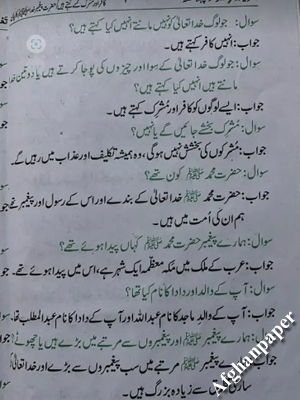 سوال: جو لوگ خدا تعالیٰ کو نہیں مانتے انہیں کیا کہتے ہیں؟
جواب: انہیں کافر کہتے ہیں۔
سوال: جو لوگ خدا تعالیٰ کے سوا اور چیزوں کی پوجا کرتے ہیں یا دو تین خدا
مانتے ہیں انہیں کیا کہتے ہیں؟
جواب: ایسے لوگوں کو کافر اور مشرک کہتے ہیں۔
سوال: مشرک بخشے جائیں گے یا نہیں؟
جواب: مشرکوں کی بخشش نہیں ہوگی، وہ ہمیشہ تکلیف اور عذاب میں رہیں گے۔
سوال: حضرت محمد ﷺ کون تھے؟
جواب: حضرت محمد ﷺ خدا تعالیٰ کے بندے اور اس کے رسول اور پیغمبر تھے
ہم ان کی اُمت میں ہیں۔
سوال: ہمارے پیغمبر حضرت محمد ﷺ کہاں پیدا ہوئے تھے؟
جواب: عرب کے ملک میں مکہ معظمہ ایک شہر ہے، اس میں پیدا ہوئے تھے۔
سوال: آپ کے والد اور دادا کا نام کیا تھا؟
جواب: آپ کے والد ماجد کا نام عبداللہ اور آپ کے دادا کا نام عبدالمطلب تھا۔
سوال: ہمارے پیغمبر ﷺ اور پیغمبروں سے مرتبے میں بڑے ہیں یا چھوٹے؟
جواب: ہمارے پیغمبر ﷺ مرتبے میں سب پیغمبروں سے بڑے اور خدا تعالیٰ کی
ساری سے زیادہ بزرگ ہیں۔
Afghanpaper